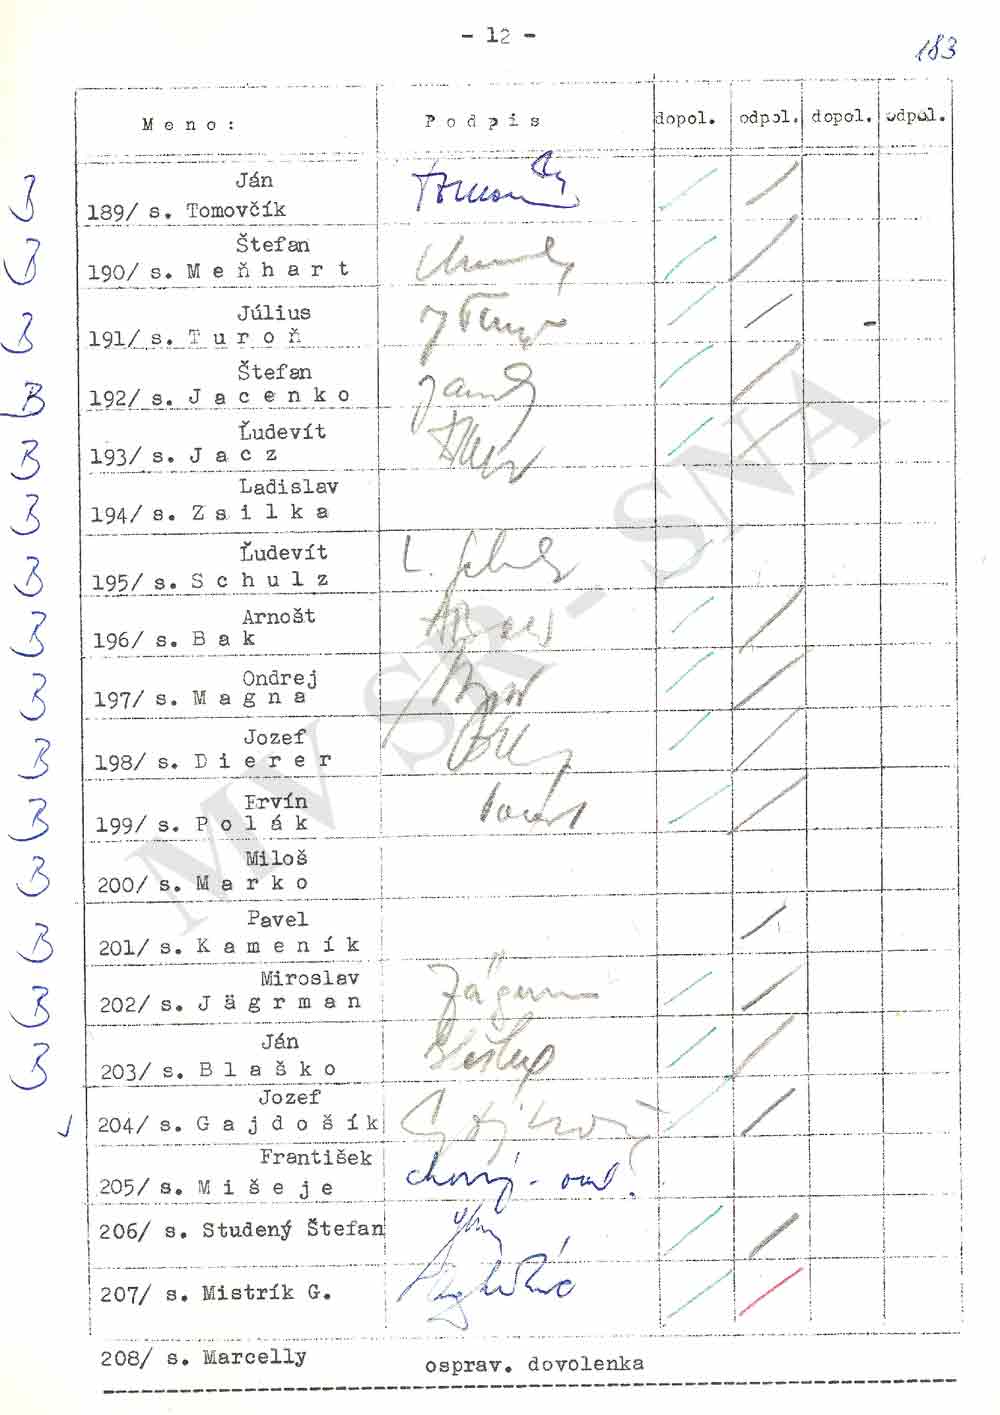 - 12 -
183
Meno: Podpis dopol. odpol. dopol. odpol.
B Ján
189/ s. Tomovčík
B Štefan
190/ s. Meňhart
B Július
191/ s. Turoň
B Štefan
192/ s. Jacenko
B Ľudevít
193/ s. Jacz
B Ladislav
194/ s. Zsilka
B Ľudevít
195/ s. Schulz
B Arnošt
196/ s. Bak
B Ondrej
197/ s. Magna
B Jozef
198/ s. Dierer
B Ervín
199/ s. Polák
B Miloš
200/ s. Marko
B Pavel
201/ s. Kameník
B Miroslav
202/ s. Jägrman
B Ján
203/ s. Blaško
Jozef
204/ s. Gajdošík
František
205/ s. Mišeje chorý -
206/ s. Studený Štefan
207/ s. Mistrík G.
208/ s. Marcelly osprav. dovolenka
MV SR - SNA